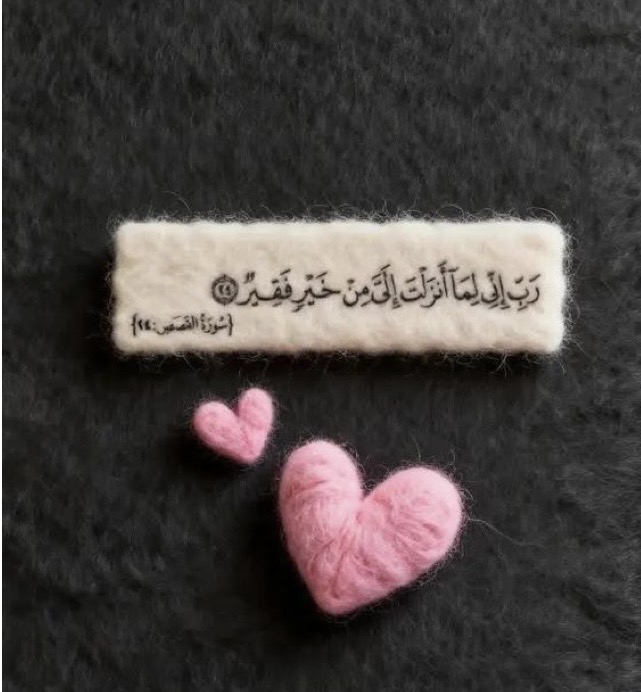 رَبِّ إِنِّى لِمَآ أَنزَلْتَ إِلَىَّ مِنْ خَيْرٍ فَقِيرٌ ۝٢٤
{سُورَةُ القَصَصِ: ٢٤}